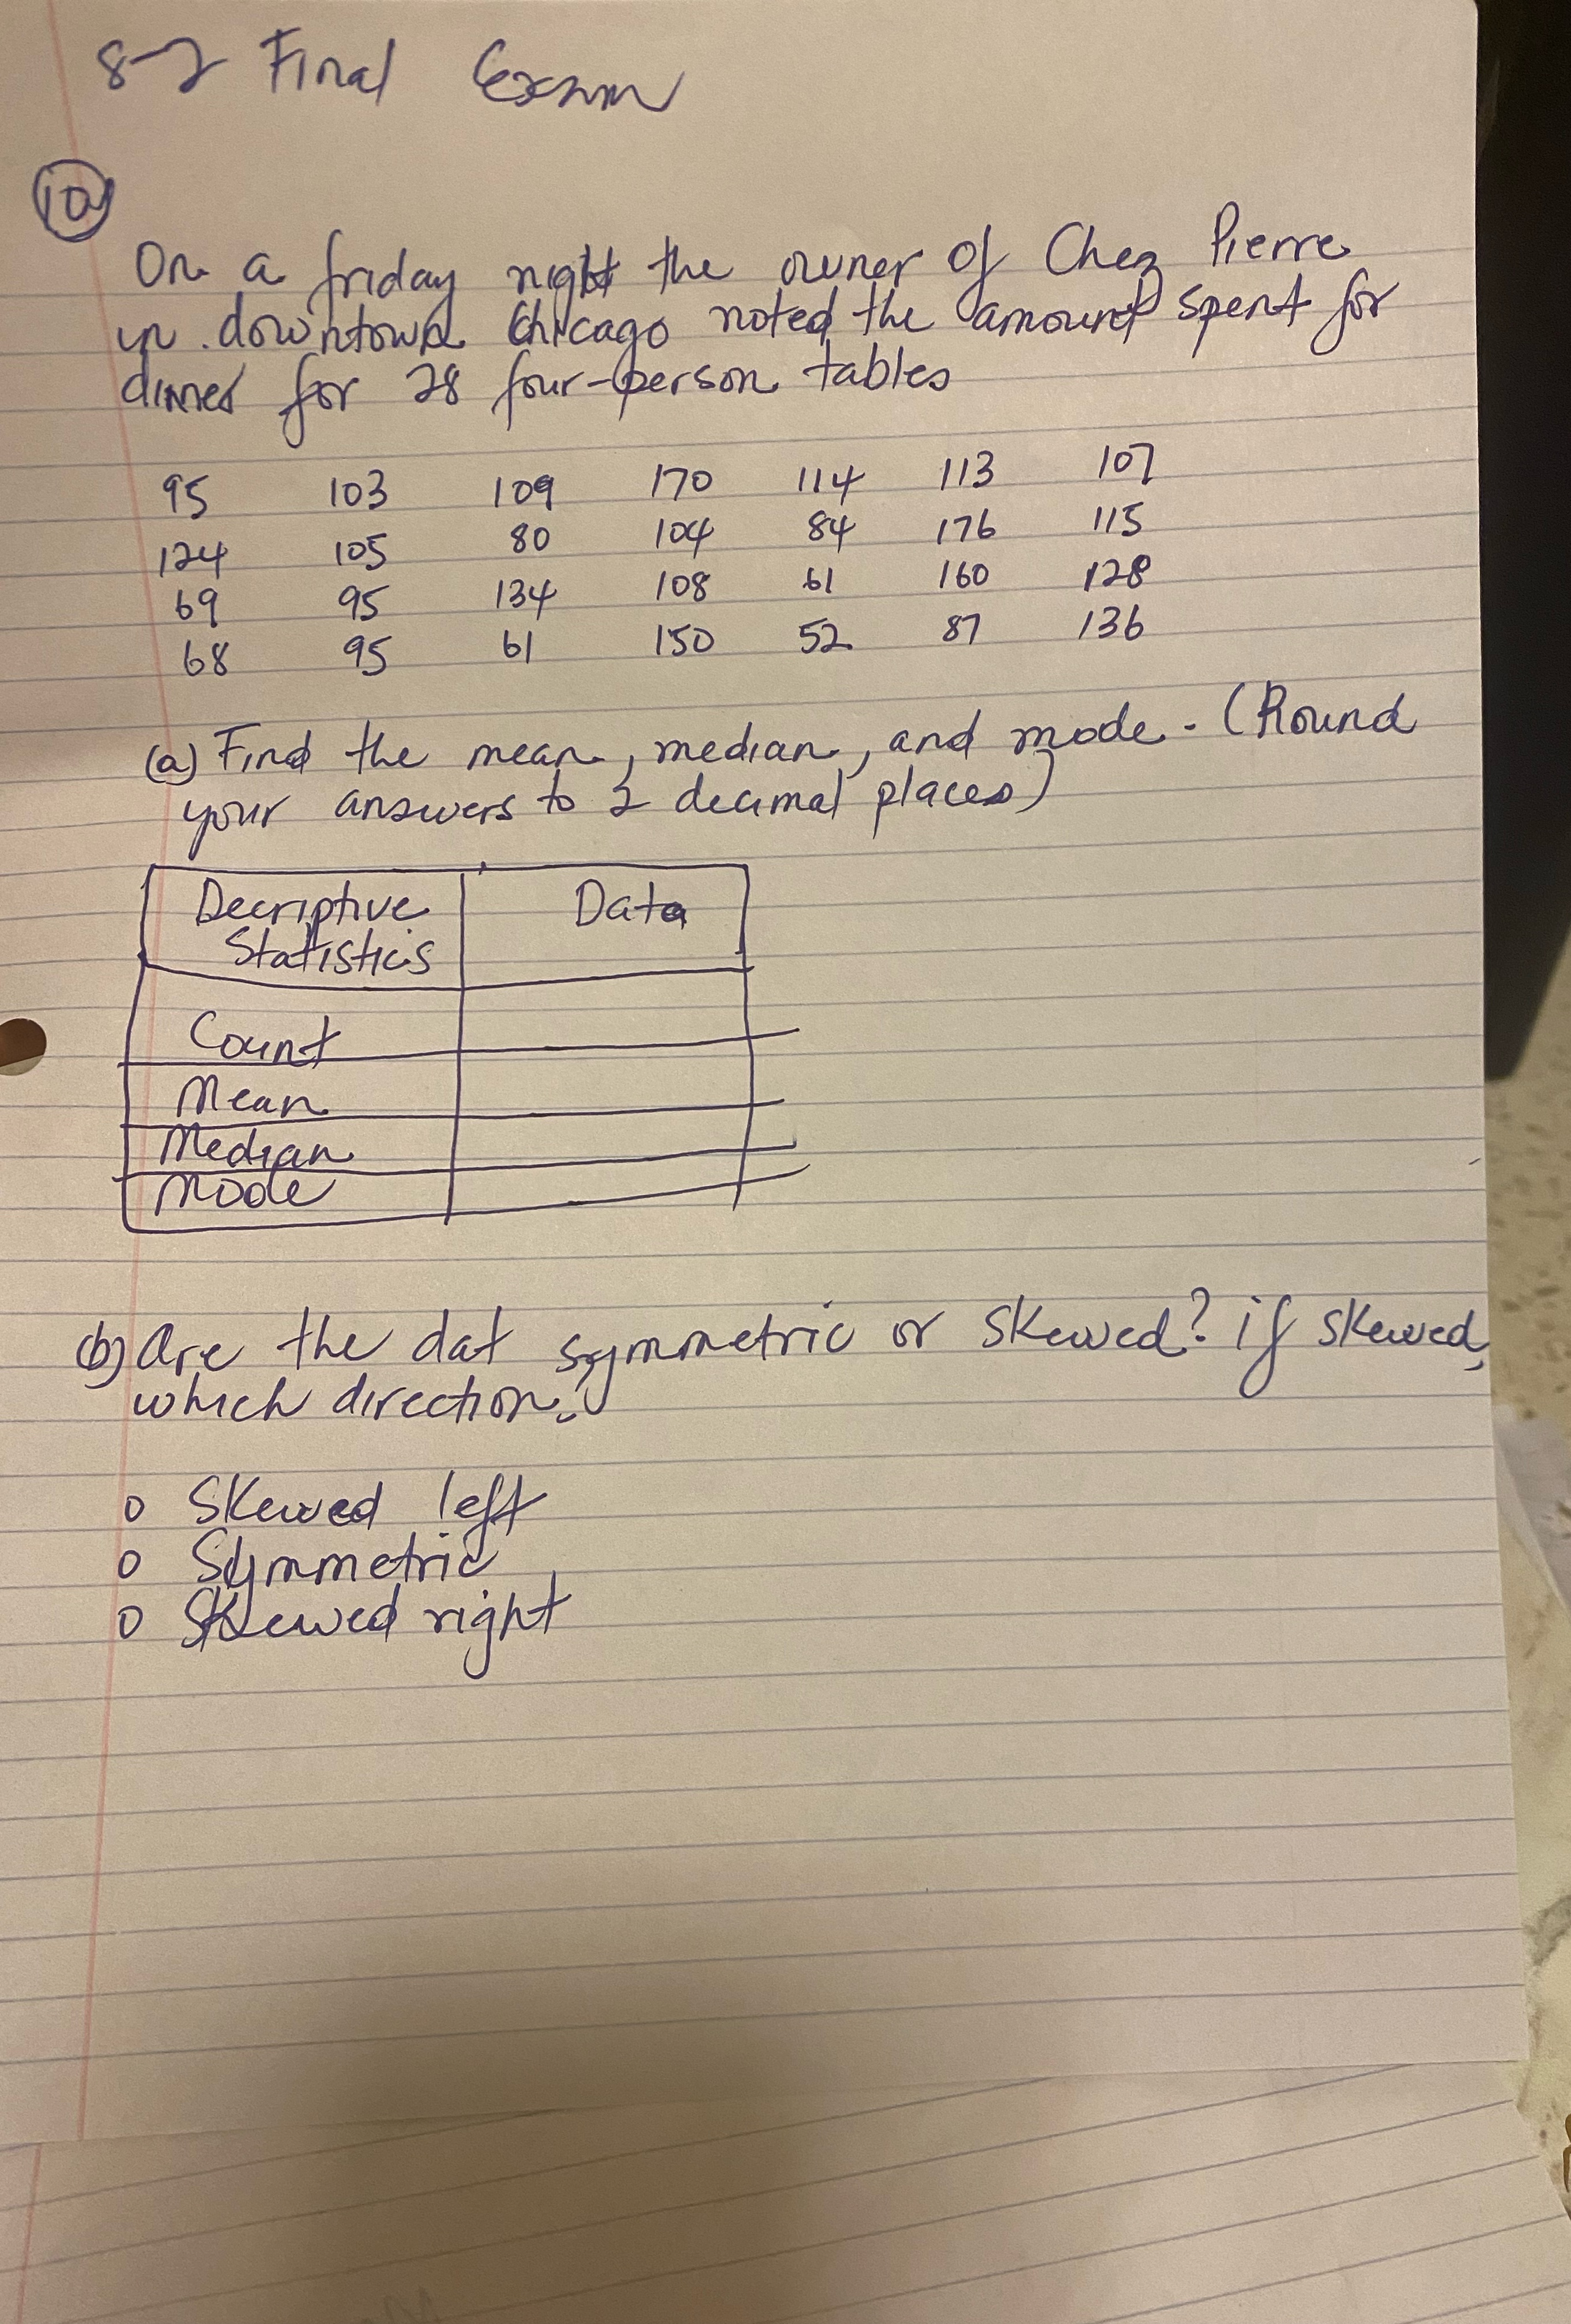 8-2 Final Exam
10
On a friday night the owner of Chez Pierre
in downtown Chicago noted the amount spent for
dinner for 28 four-person tables
95 103 109 170 114 113 107
124 105 80 104 84 176 115
69 95 134 108 61 160 128
68 95 61 150 52 87 136
(a) Find the mean, median, and mode. (Round
your answers to 2 decimal places)
Decriptive Data
Statistics
Count
Mean
Median
Mode
(b) Are the dat symmetric or skewed? if skewed,
which direction?
o Skewed left
o Symmetric
o Skewed right